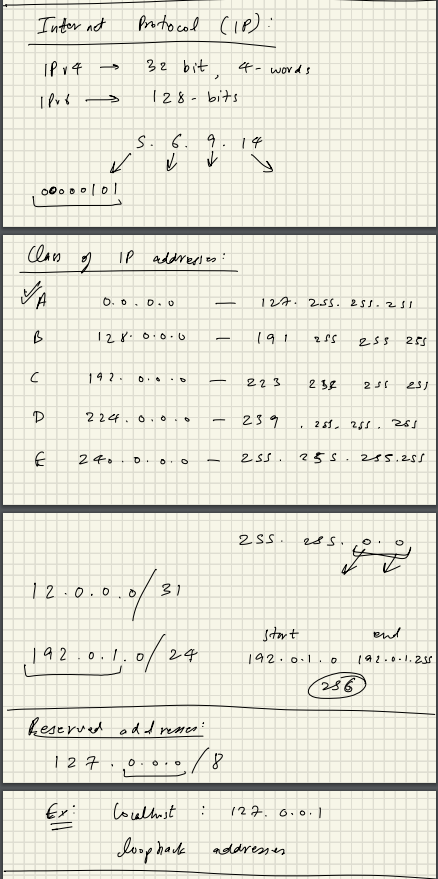 Internet Protocol (IP):
IPv4 → 32 bit, 4-words
IPv6 → 128-bits
5. 6. 9. 14
00000101
Class of IP addresses:
A 0.0.0.0 — 127.255.255.255
B 128.0.0.0 — 191 255 255 255
C 192.0.0.0 — 223 255 255 255
D 224.0.0.0 — 239.255.255.255
E 240.0.0.0 — 255.255.255.255
255.255.0.0
12.0.0.0/31
start end
192.0.1.0/24 192.0.1.0 192.0.1.255
256
Reserved addresses:
127.0.0.0/8
Ex: localhost : 127.0.0.1
loopback addresses